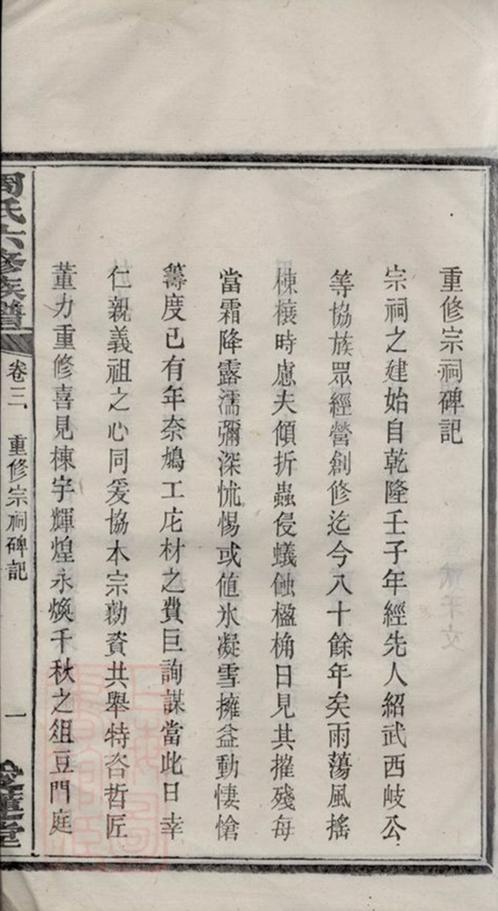 重修宗祠碑記
宗祠之建始自乾隆壬子年經先人紹武西岐公
等協族眾經營創修迄今八十餘年矣雨蕩風搖
棟榱時慮夫傾折蟲侵蟻蝕楹桷日見其摧殘每
當霜降露濡彌深怵惕或值氷凝雪擁益動悽愴
籌度已有年奈鳩工庀材之費巨詢謀當此日幸
仁親義祖之心同爰協本宗勷資共舉特咨哲匠
董力重修喜見棟宇輝煌永煥千秋之俎豆門庭
周氏六修族譜
卷三 重修宗祠碑記 一